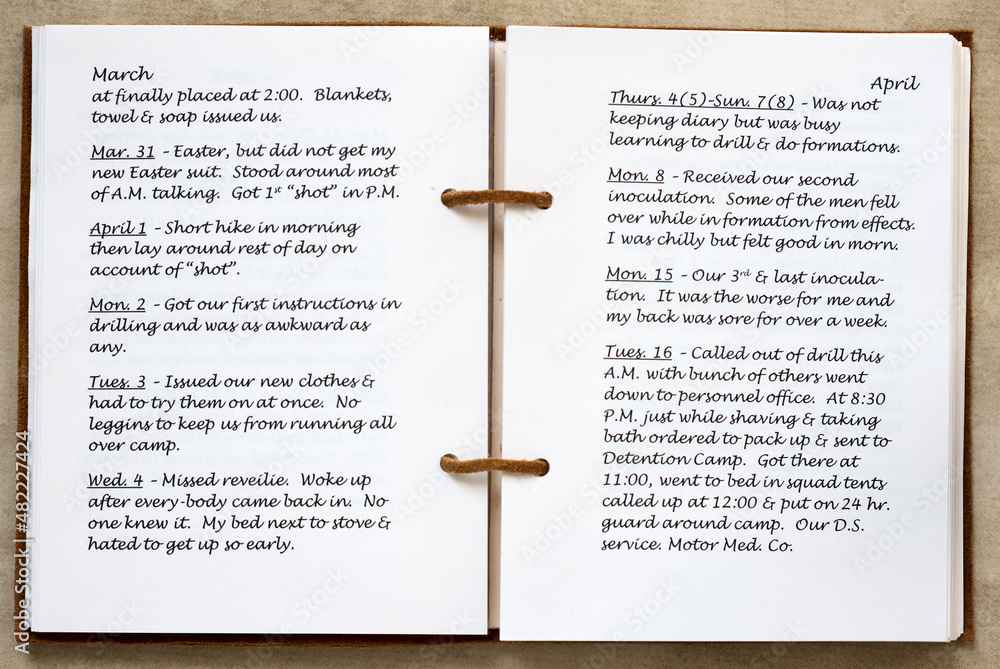 March
at finally placed at 2:00. Blankets,
towel & soap issued us.
Mar. 31 - Easter, but did not get my
new Easter suit. Stood around most
of A.M. talking. Got 1st "shot" in P.M.
April 1 - Short hike in morning
then lay around rest of day on
account of "shot".
Mon. 2 - Got our first instructions in
drilling and was as awkward as
any.
Tues. 3 - Issued our new clothes &
had to try them on at once. No
leggins to keep us from running all
over camp.
Wed. 4 - Missed reveilie. Woke up
after every-body came back in. No
one knew it. My bed next to stove &
hated to get up so early.
April
Thurs. 4(5)-Sun. 7(8) - Was not
keeping diary but was busy
learning to drill & do formations.
Mon. 8 - Received our second
inoculation. Some of the men fell
over while in formation from effects.
I was chilly but felt good in morn.
Mon. 15 - Our 3rd & last inocula-
tion. It was the worse for me and
my back was sore for over a week.
Tues. 16 - Called out of drill this
A.M. with bunch of others went
down to personnel office. At 8:30
P.M. just while shaving & taking
bath ordered to pack up & sent to
Detention Camp. Got there at
11:00, went to bed in squad tents
called up at 12:00 & put on 24 hr.
guard around camp. Our D.S.
service. Motor Med. Co.
Adobe Stock | #482227424